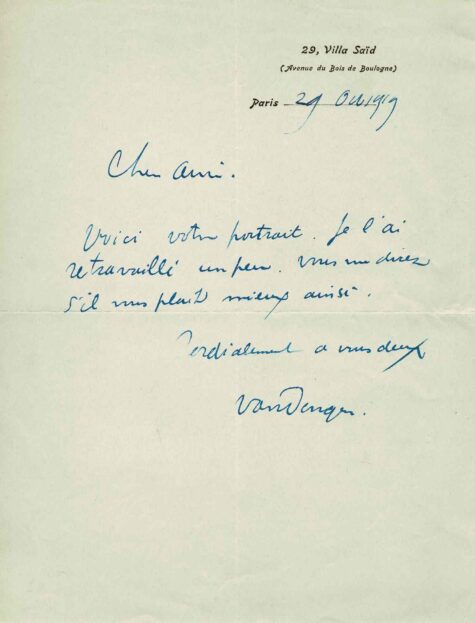 29, Villa Saïd
(Avenue du Bois de Boulogne)
Paris 29 Oct 1919
Cher ami.
Voici votre portrait. Je l'ai
retravaillé un peu. Vous me direz
s'il vous plait mieux ainsi.
Cordialement a vous deux
Van Dongen.